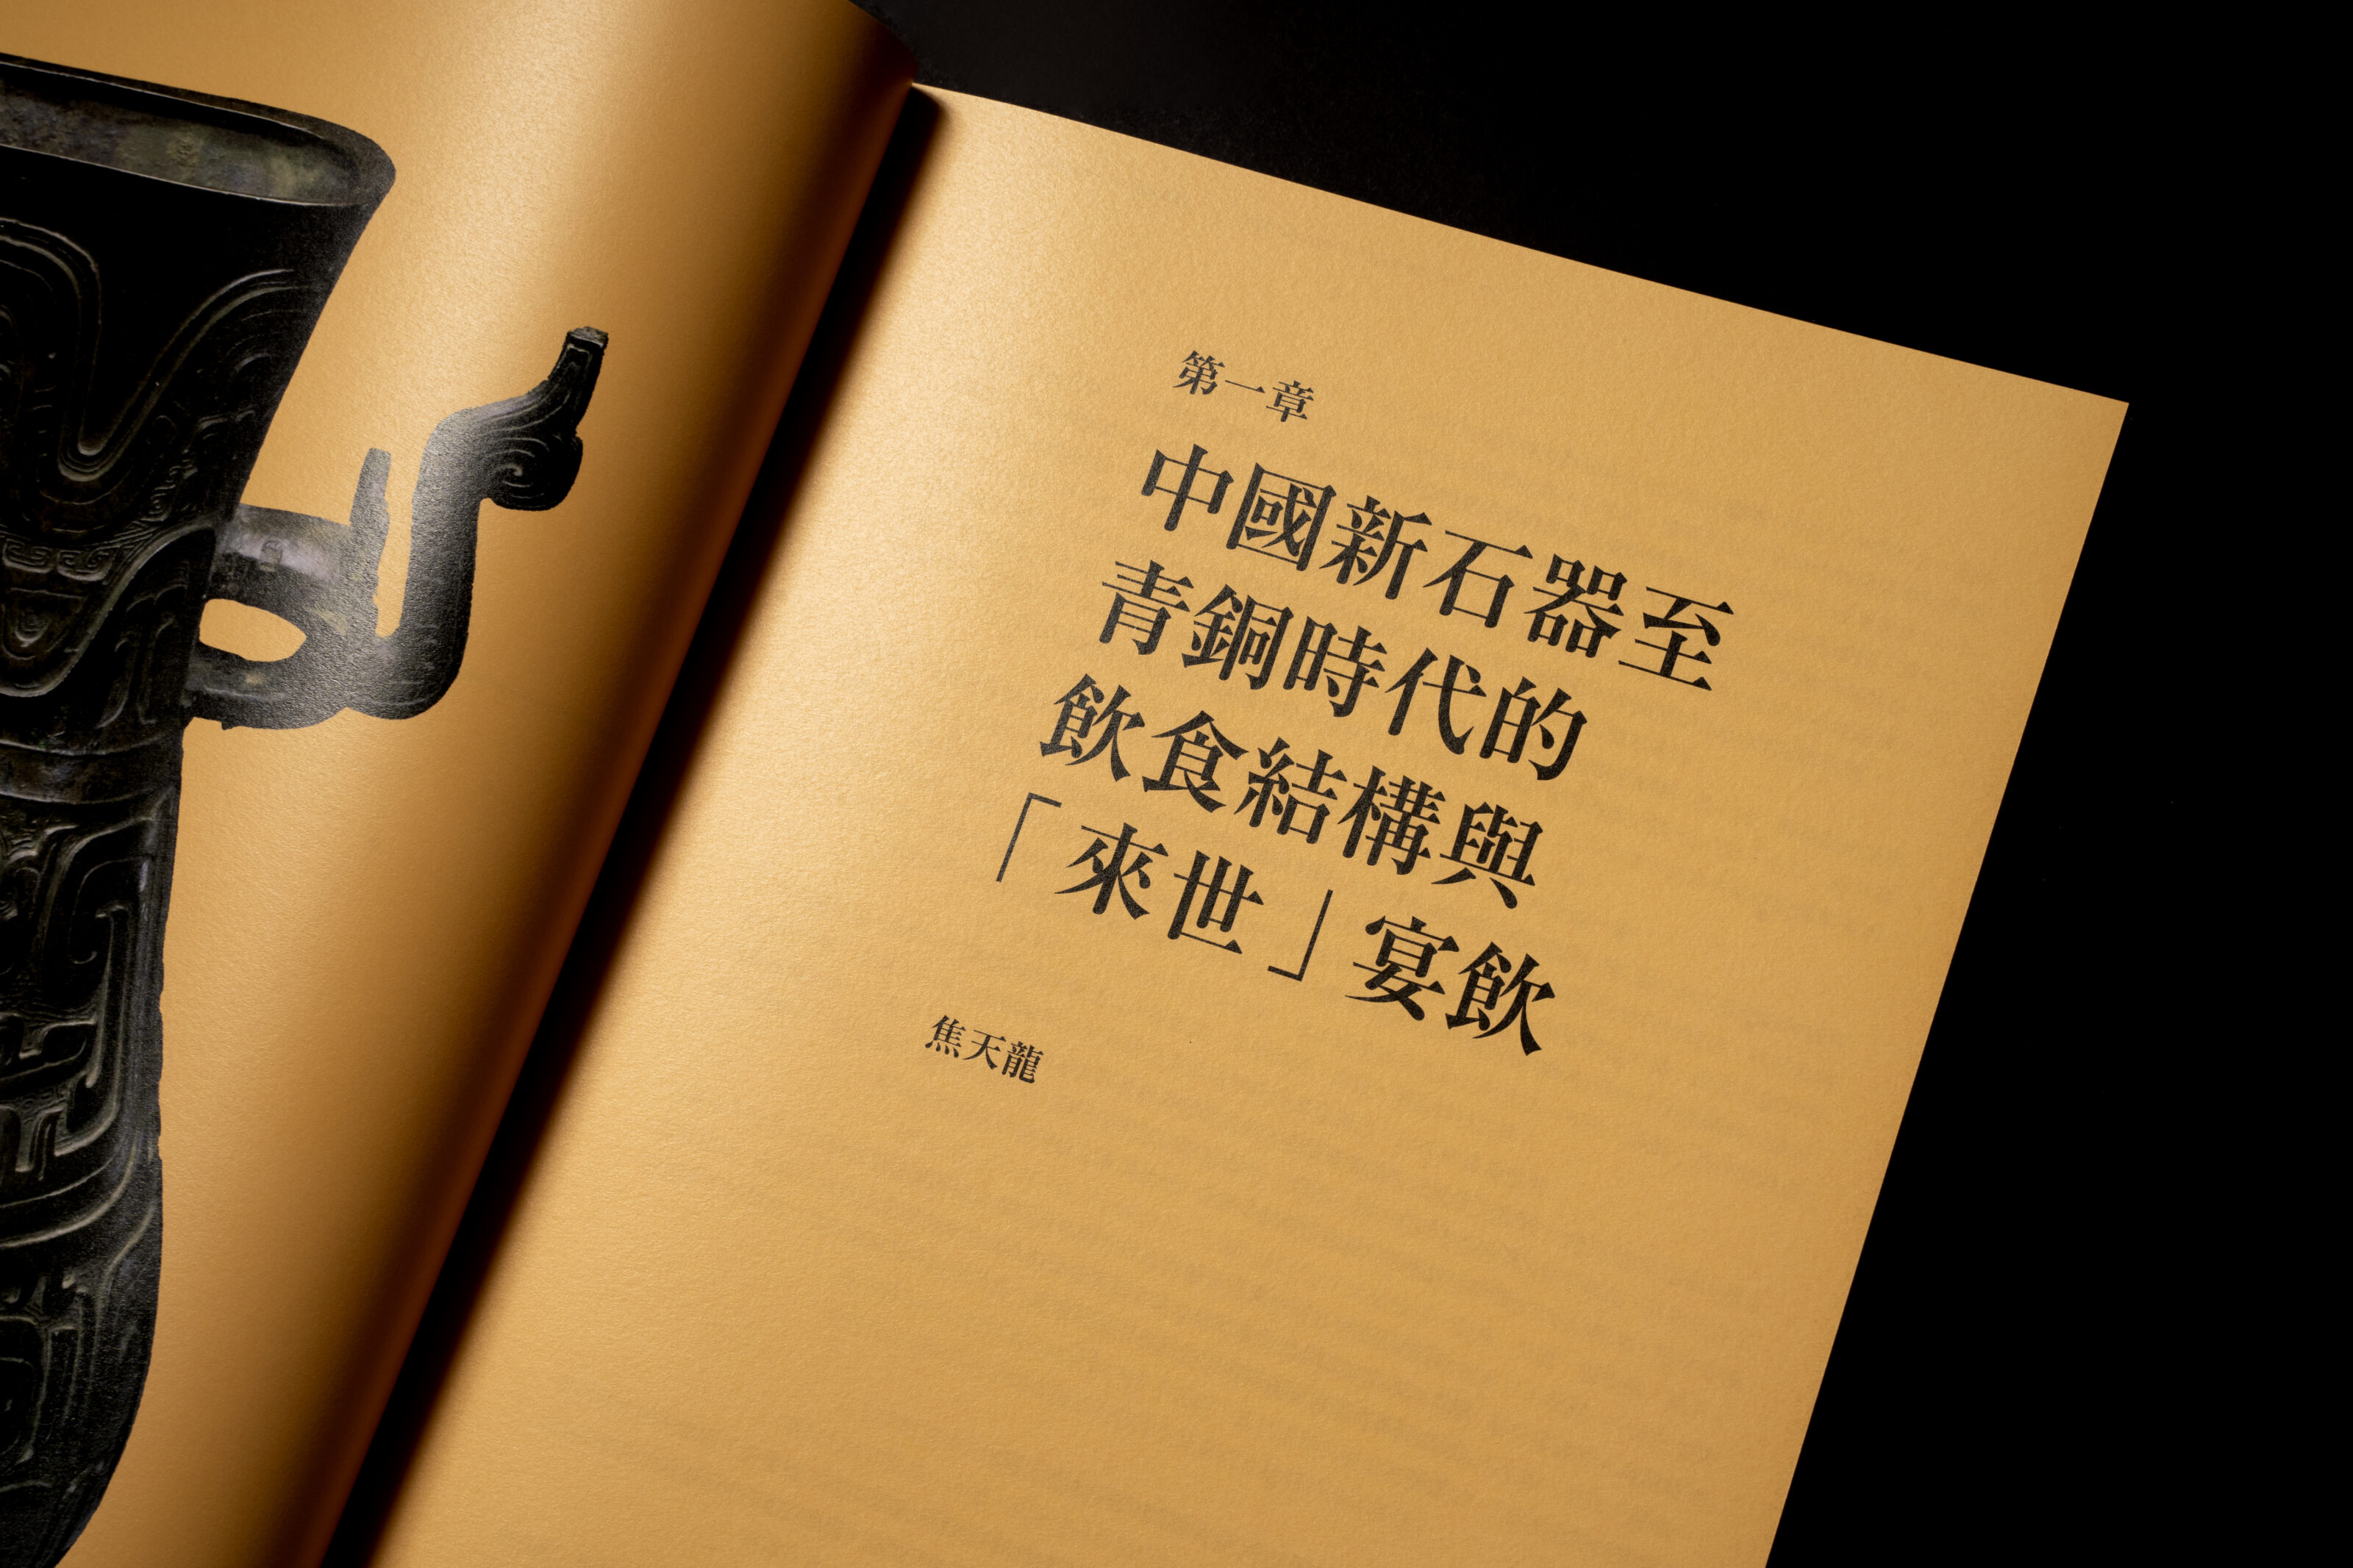 第一章
中國新石器至
青銅時代的
飲食結構與
「來世」宴飲
焦天龍